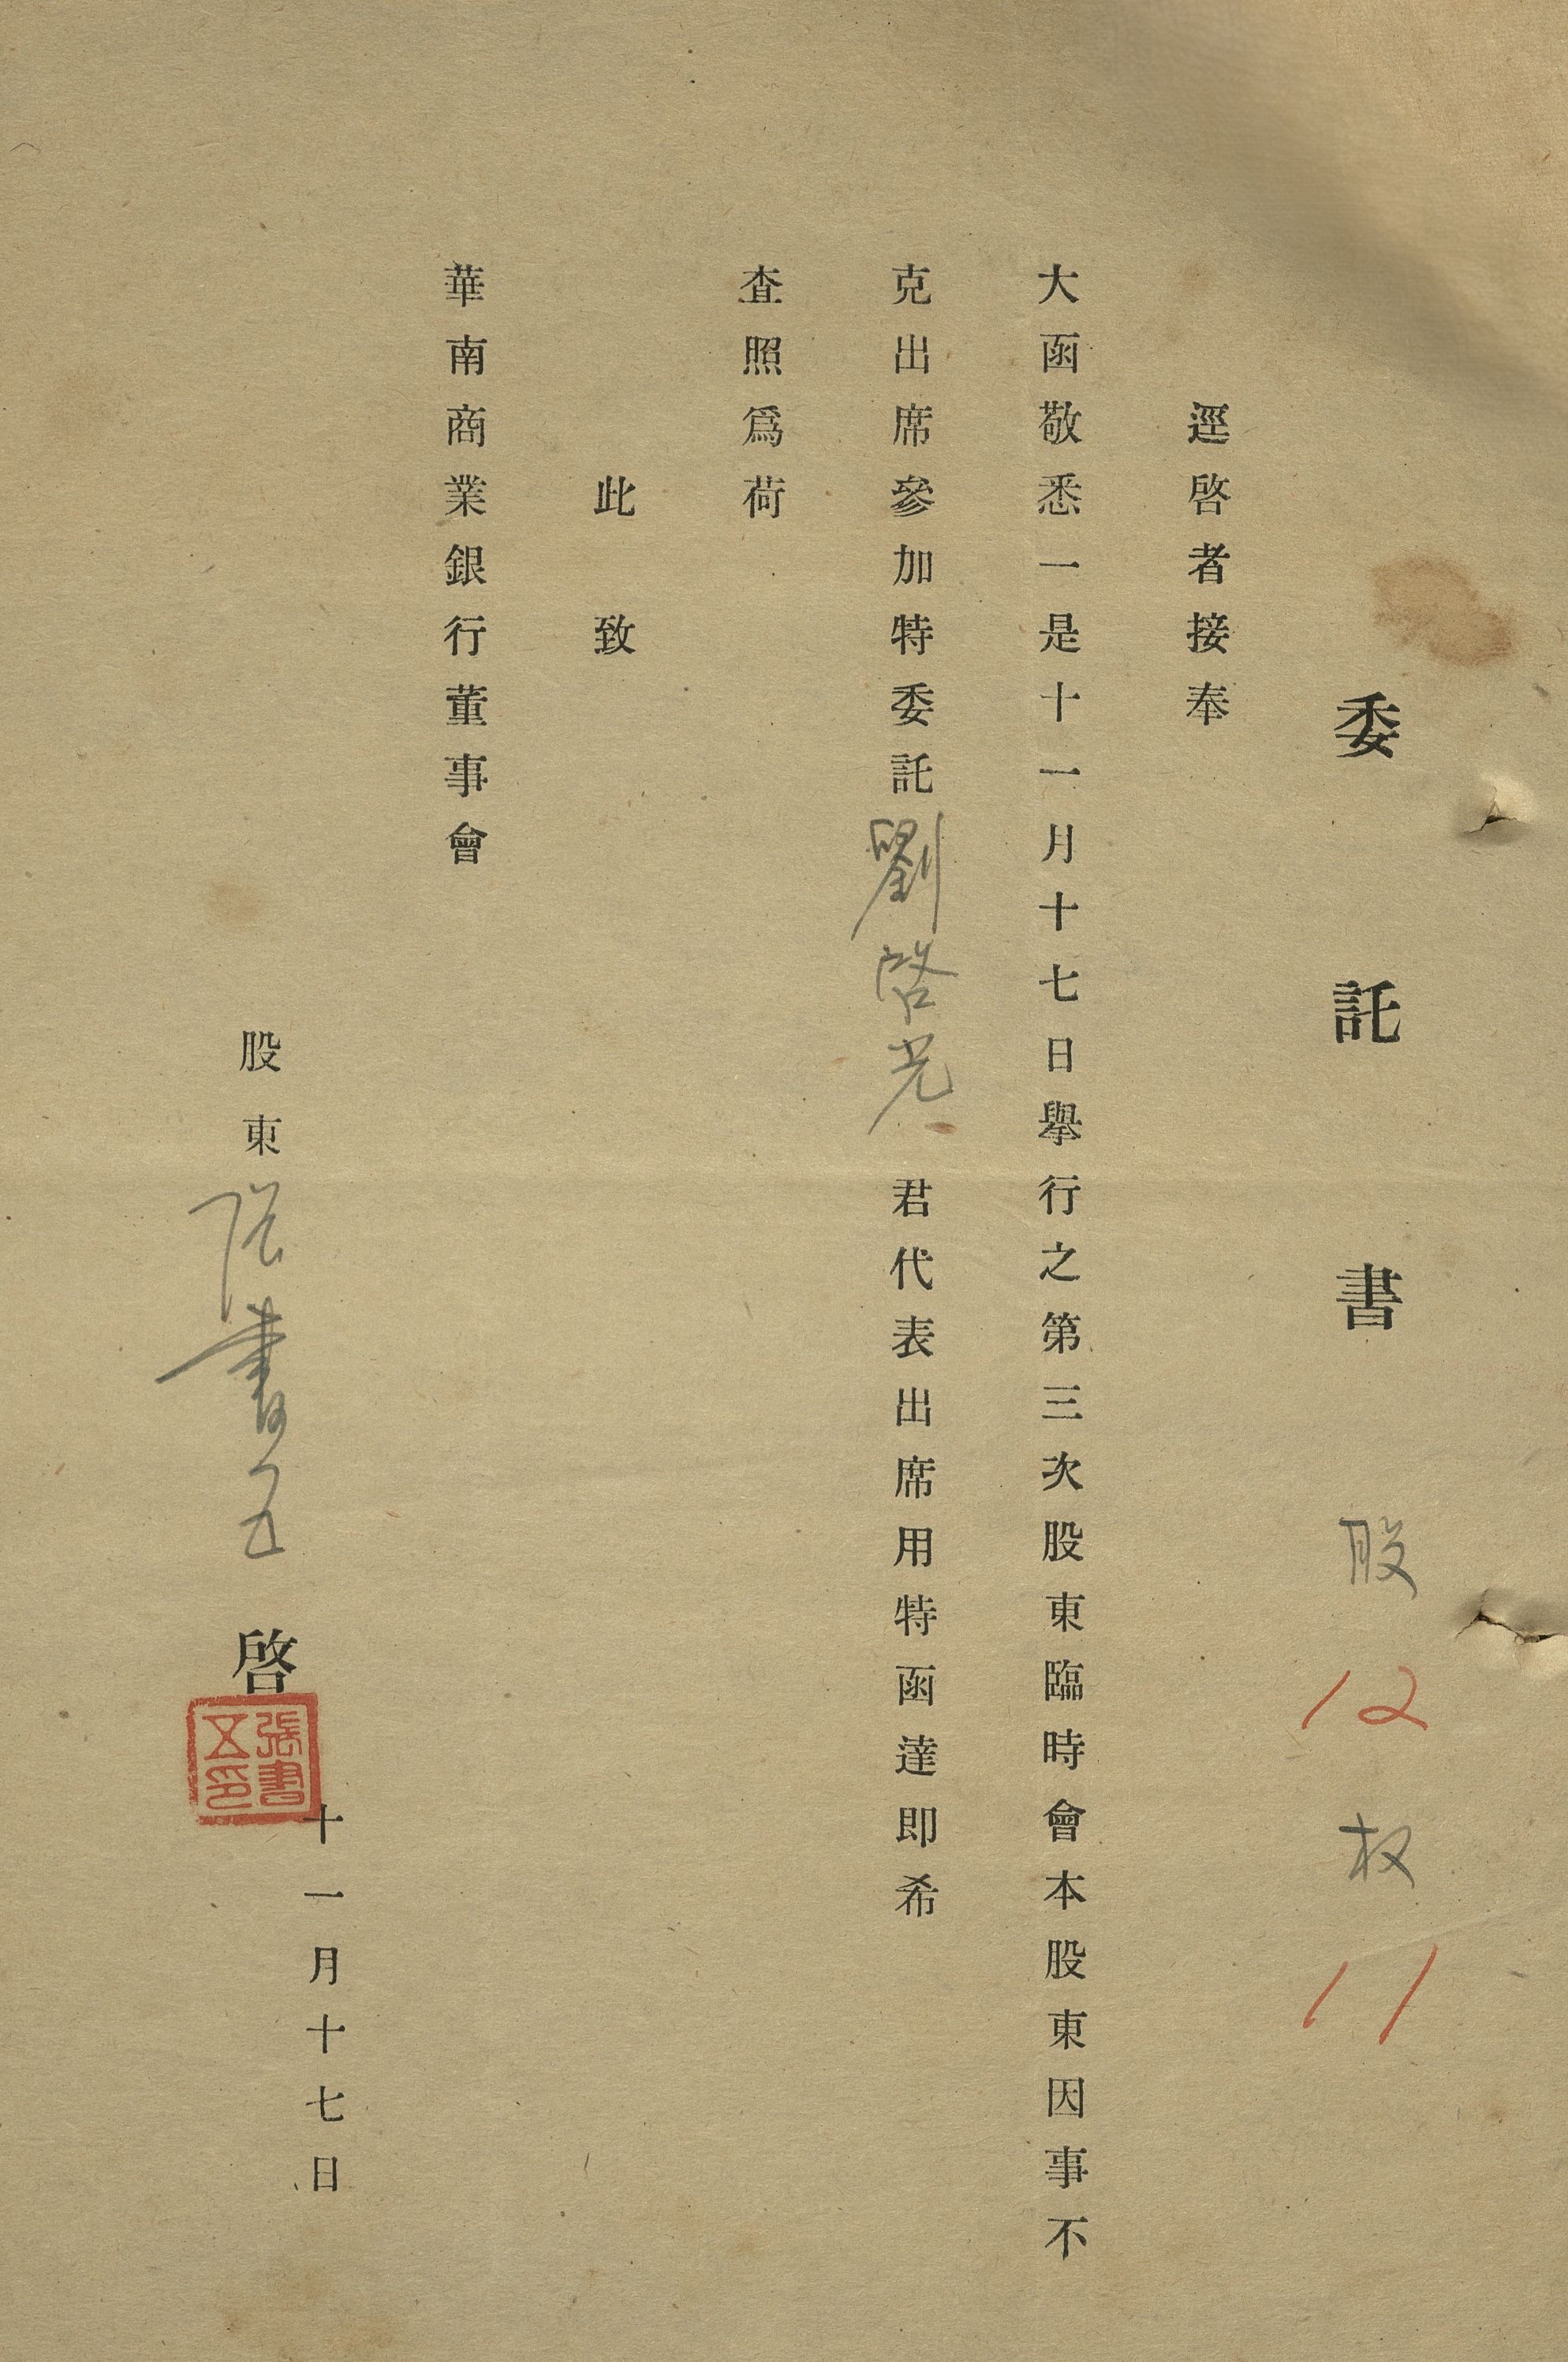 委託書 股 12 权 11
逕啓者接奉
大函敬悉一是十一月十七日舉行之第三次股東臨時會本股東因事不
克出席參加特委託劉啓光君代表出席用特函達即希
查照爲荷
此致
華南商業銀行董事會
十一月十七日
股東張書五啓
張書五印